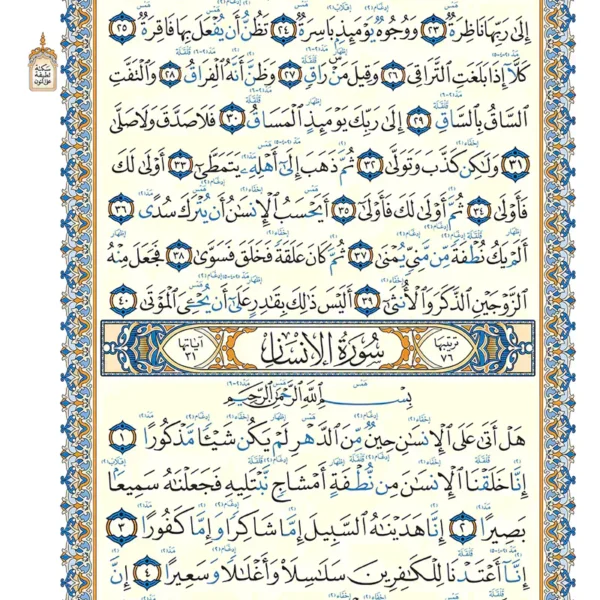 إِلَىٰ رَبِّهَا نَاظِرَةٌ ٢٣ وَوُجُوهٌ يَوْمَئِذٍ بَاسِرَةٌ ٢٤ تَظُنُّ أَن يُفْعَلَ بِهَا فَاقِرَةٌ ٢٥
كَلَّا إِذَا بَلَغَتِ التَّرَاقِيَ ٢٦ وَقِيلَ مَنْ رَاقٍ ٢٧ وَظَنَّ أَنَّهُ الْفِرَاقُ ٢٨ وَالْتَفَّتِ
السَّاقُ بِالسَّاقِ ٢٩ إِلَىٰ رَبِّكَ يَوْمَئِذٍ الْمَسَاقُ ٣٠ فَلَا صَدَّقَ وَلَا صَلَّىٰ
٣١ وَلَٰكِن كَذَّبَ وَتَوَلَّىٰ ٣٢ ثُمَّ ذَهَبَ إِلَىٰ أَهْلِهِ يَتَمَطَّىٰ ٣٣ أَوْلَىٰ لَكَ
فَأَوْلَىٰ ٣٤ ثُمَّ أَوْلَىٰ لَكَ فَأَوْلَىٰ ٣٥ أَيَحْسَبُ الْإِنسَانُ أَن يُتْرَكَ سُدًى ٣٦
أَلَمْ يَكُ نُطْفَةً مِّن مَّنِيٍّ يُمْنَىٰ ٣٧ ثُمَّ كَانَ عَلَقَةً فَخَلَقَ فَسَوَّىٰ ٣٨ فَجَعَلَ مِنْهُ
الزَّوْجَيْنِ الذَّكَرَ وَالْأُنثَىٰ ٣٩ أَلَيْسَ ذَٰلِكَ بِقَادِرٍ عَلَىٰ أَن يُحْيِيَ الْمَوْتَىٰ ٤٠
ترتيبها ٧٦ سُورَةُ الْإِنْسَان آياتها ٣١
بِسْمِ اللَّهِ الرَّحْمَٰنِ الرَّحِيمِ
هَلْ أَتَىٰ عَلَى الْإِنسَانِ حِينٌ مِّنَ الدَّهْرِ لَمْ يَكُن شَيْئًا مَّذْكُورًا ١
إِنَّا خَلَقْنَا الْإِنسَانَ مِن نُّطْفَةٍ أَمْشَاجٍ نَّبْتَلِيهِ فَجَعَلْنَاهُ سَمِيعًا
بَصِيرًا ٢ إِنَّا هَدَيْنَاهُ السَّبِيلَ إِمَّا شَاكِرًا وَإِمَّا كَفُورًا ٣
إِنَّا أَعْتَدْنَا لِلْكَافِرِينَ سَلَاسِلَا وَأَغْلَالًا وَسَعِيرًا ٤ إِنَّ